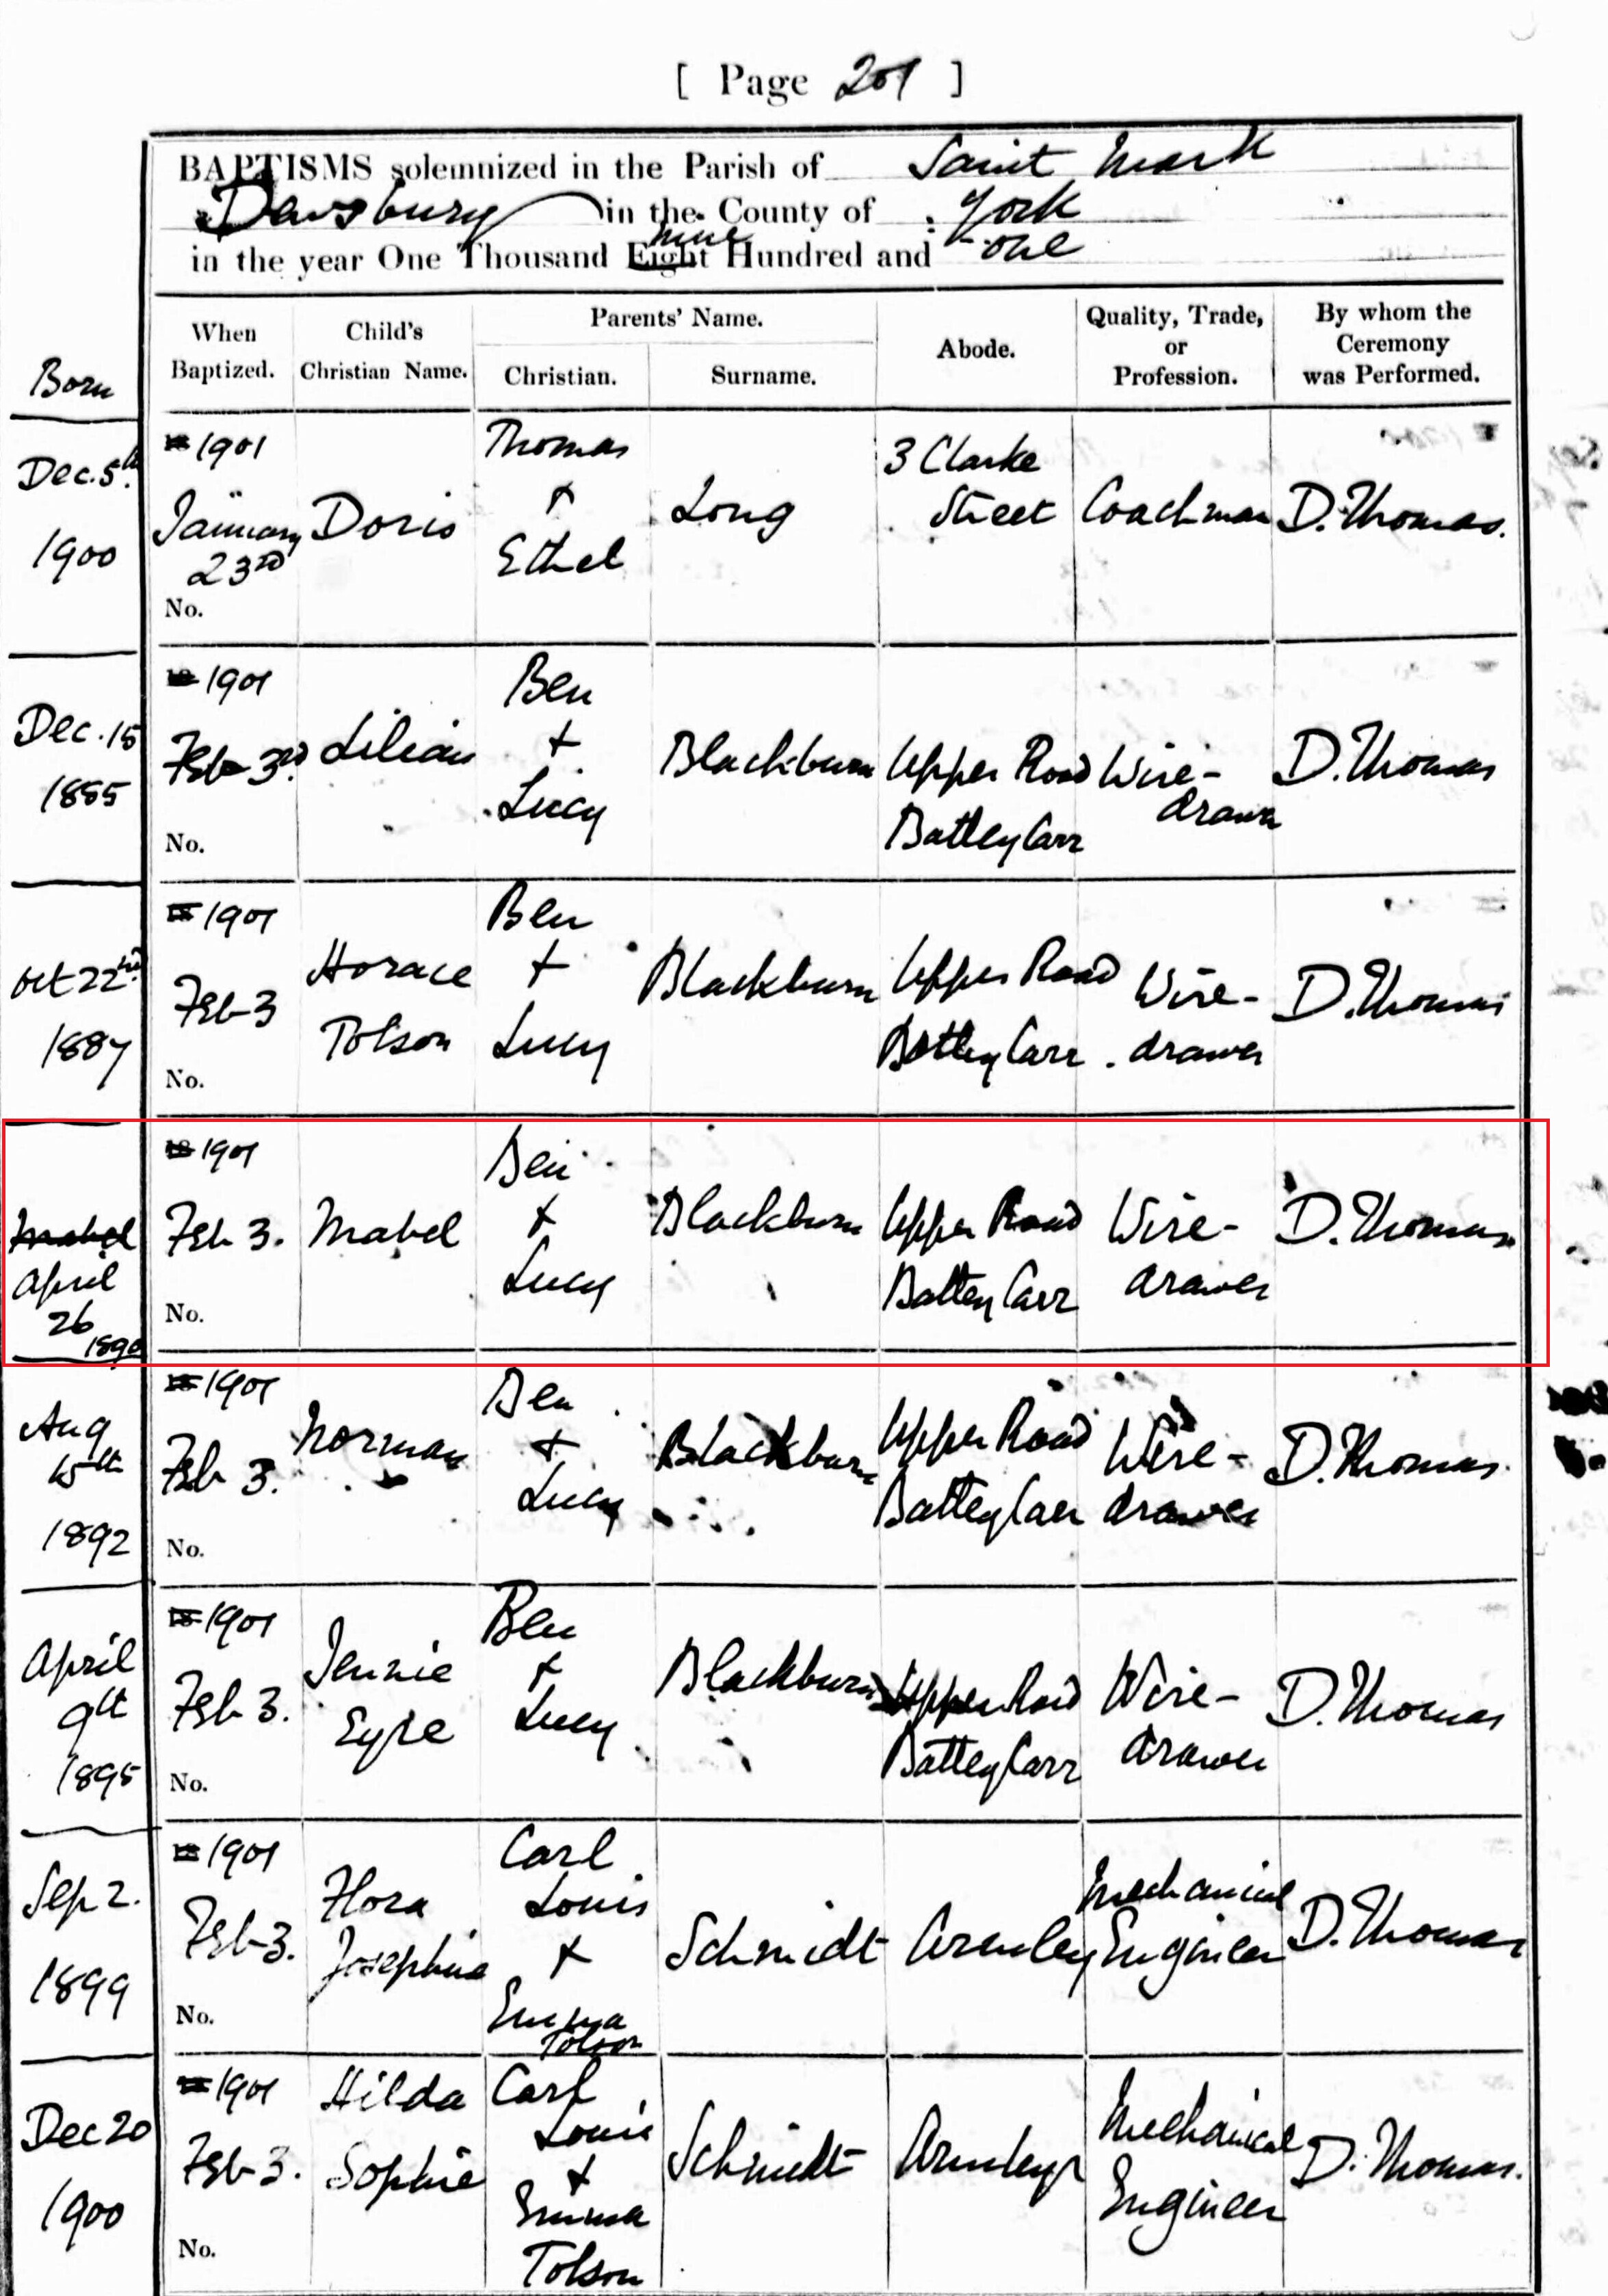 [ Page 201 ]
BAPTISMS solemnized in the Parish of Saint Mark
Dewsbury in the County of York
in the year One Thousand Eight nine Hundred and one
Born
When Baptized.
Child's Christian Name.
Parents' Name.
Christian.
Surname.
Abode.
Quality, Trade, or Profession.
By whom the Ceremony was Performed.
Dec. 5th
1900
18 1901
January
23rd
No.
Doris
Thomas
+
Ethel
Long
3 Clarke
Street
Coachman
D. Thomas.
Dec. 15
1885
18 1901
Feb 3rd.
No.
Lilian
Ben
+
Lucy
Blackburn
Upper Road
Batley Carr
Wire-
drawer
D. Thomas
Oct 22nd
1887
18 1901
Feb 3
No.
Horace
Tolson
Ben
+
Lucy
Blackburn
Upper Road
Batley Carr
Wire-
drawer
D. Thomas
Mabel
April
26
1890
18 1901
Feb 3.
No.
Mabel
Ben
+
Lucy
Blackburn
Upper Road
Batley Carr
Wire-
drawer
D. Thomas
Aug
15th
1892
18 1901
Feb 3.
No.
Norman
Ben
+
Lucy
Blackburn
Upper Road
Batley Carr
Wire-
drawer
D. Thomas.
April
9th
1895
18 1901
Feb 3.
No.
Jennie
Eyre
Ben
+
Lucy
Blackburn
Upper Road
Batley Carr
Wire-
drawer
D. Thomas
Sep 2.
1899
18 1901
Feb 3.
No.
Flora
Josephine
Carl
Louis
+
Emma
Tolson
Schmidt
Armley
Mechanical
Engineer
D. Thomas
Dec 20
1900
18 1901
Feb 3.
No.
Hilda
Sophie
Carl
Louis
+
Emma
Tolson
Schmidt
Armley
Mechanical
Engineer
D. Thomas.